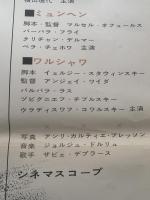 ■ミュンヘン
脚本・監督 マルセル・オフュールス
バーバラ・フライ
クリチャン・デルマー
ベラ・チェホワ 主演
■ワルシャワ
脚本 イェルジー・スタウィンスキー
監督 アンジェイ・ワイダ
バルバラ・ラス
ヅビグニエフ・チブルスキー
ウラディスワフ・コワルスキー 主演
写真 アンリ・カルティエ・ブレッソン
音楽 ジョルジュ・ドルリュ
歌手 ザビェ・デプラース
シネマスコープ